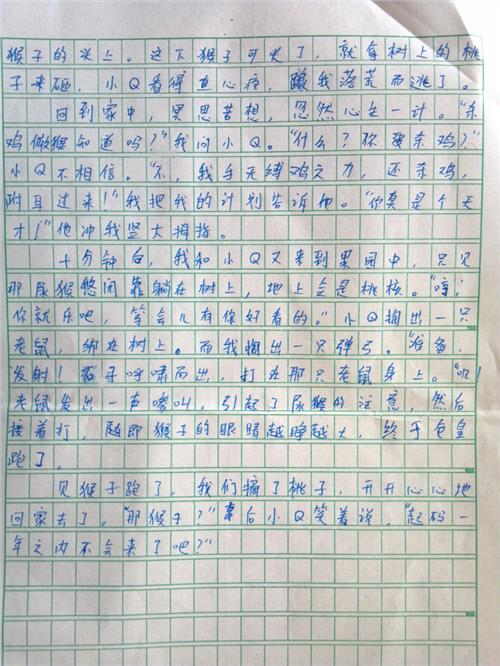 猴子的头上。这下猴子可火了，就拿树上的桃
子来砸，小Q看得直心疼，跟我落荒而逃了。
回到家中，冥思苦想，忽然心生一计。“杀
鸡儆猴知道吗？”我问小Q。“什么？你要杀鸡？”
小Q不相信。“不，我手无缚鸡之力，还杀鸡，
附耳过来！”我把我的计划告诉他。“你真是个天
才！”他冲我竖大拇指。
十分钟后，我和小Q又来到果园中，只见
那只猴悠闲靠躺在树上，地上全是桃核。“哼！
你就乐吧，等会儿有你好看的。”小Q掏出一只
老鼠，绑在树上。而我掏出一只弹弓。“准备，
发射！石子呼啸而出，打在那只老鼠身上。“叽！
老鼠发出一声嚎叫，引起了猴的注意，然后
接着打，随即猴子的眼睛越睁越大，终于仓皇
跑了。
见猴子跑了，我们摘了桃子，开开心心地
回家去了，“那猴子？”事后小Q笑着说，“起码一
年之内不会来了吧？”